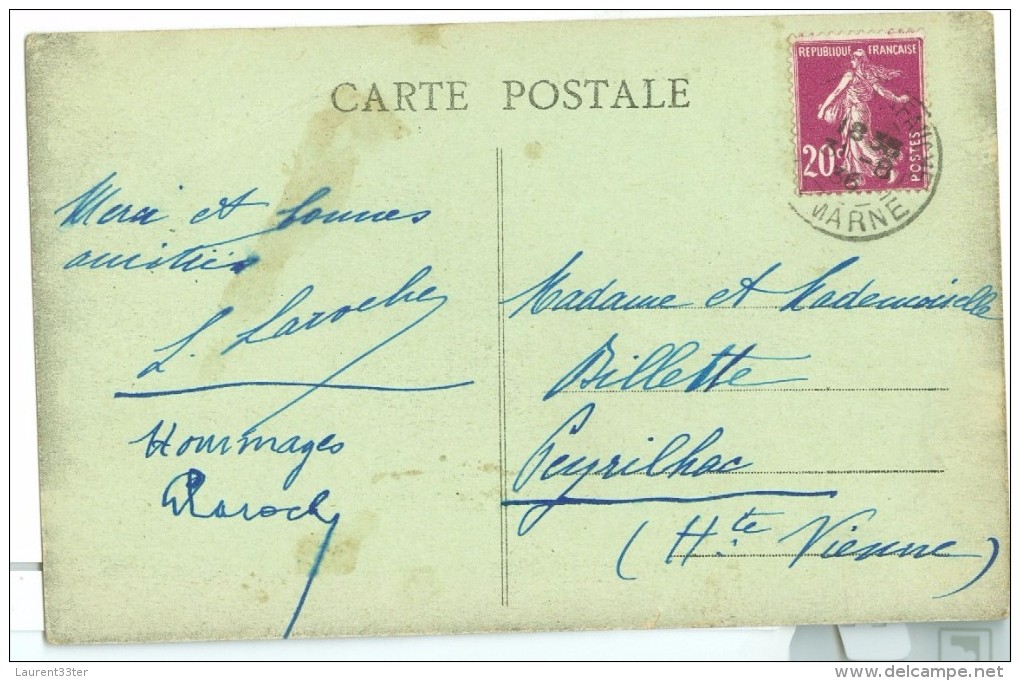 CARTE POSTALE
REPUBLIQUE FRANÇAISE
20c
POSTES
18 35
MARNE
Merci et bonnes
amitiés
L. Laroche
Hommages
Laroche
Madame et Mademoiselle
Billette
Peyrilhac
(Hte Vienne)
Laurent33ter
www.delcampe.net